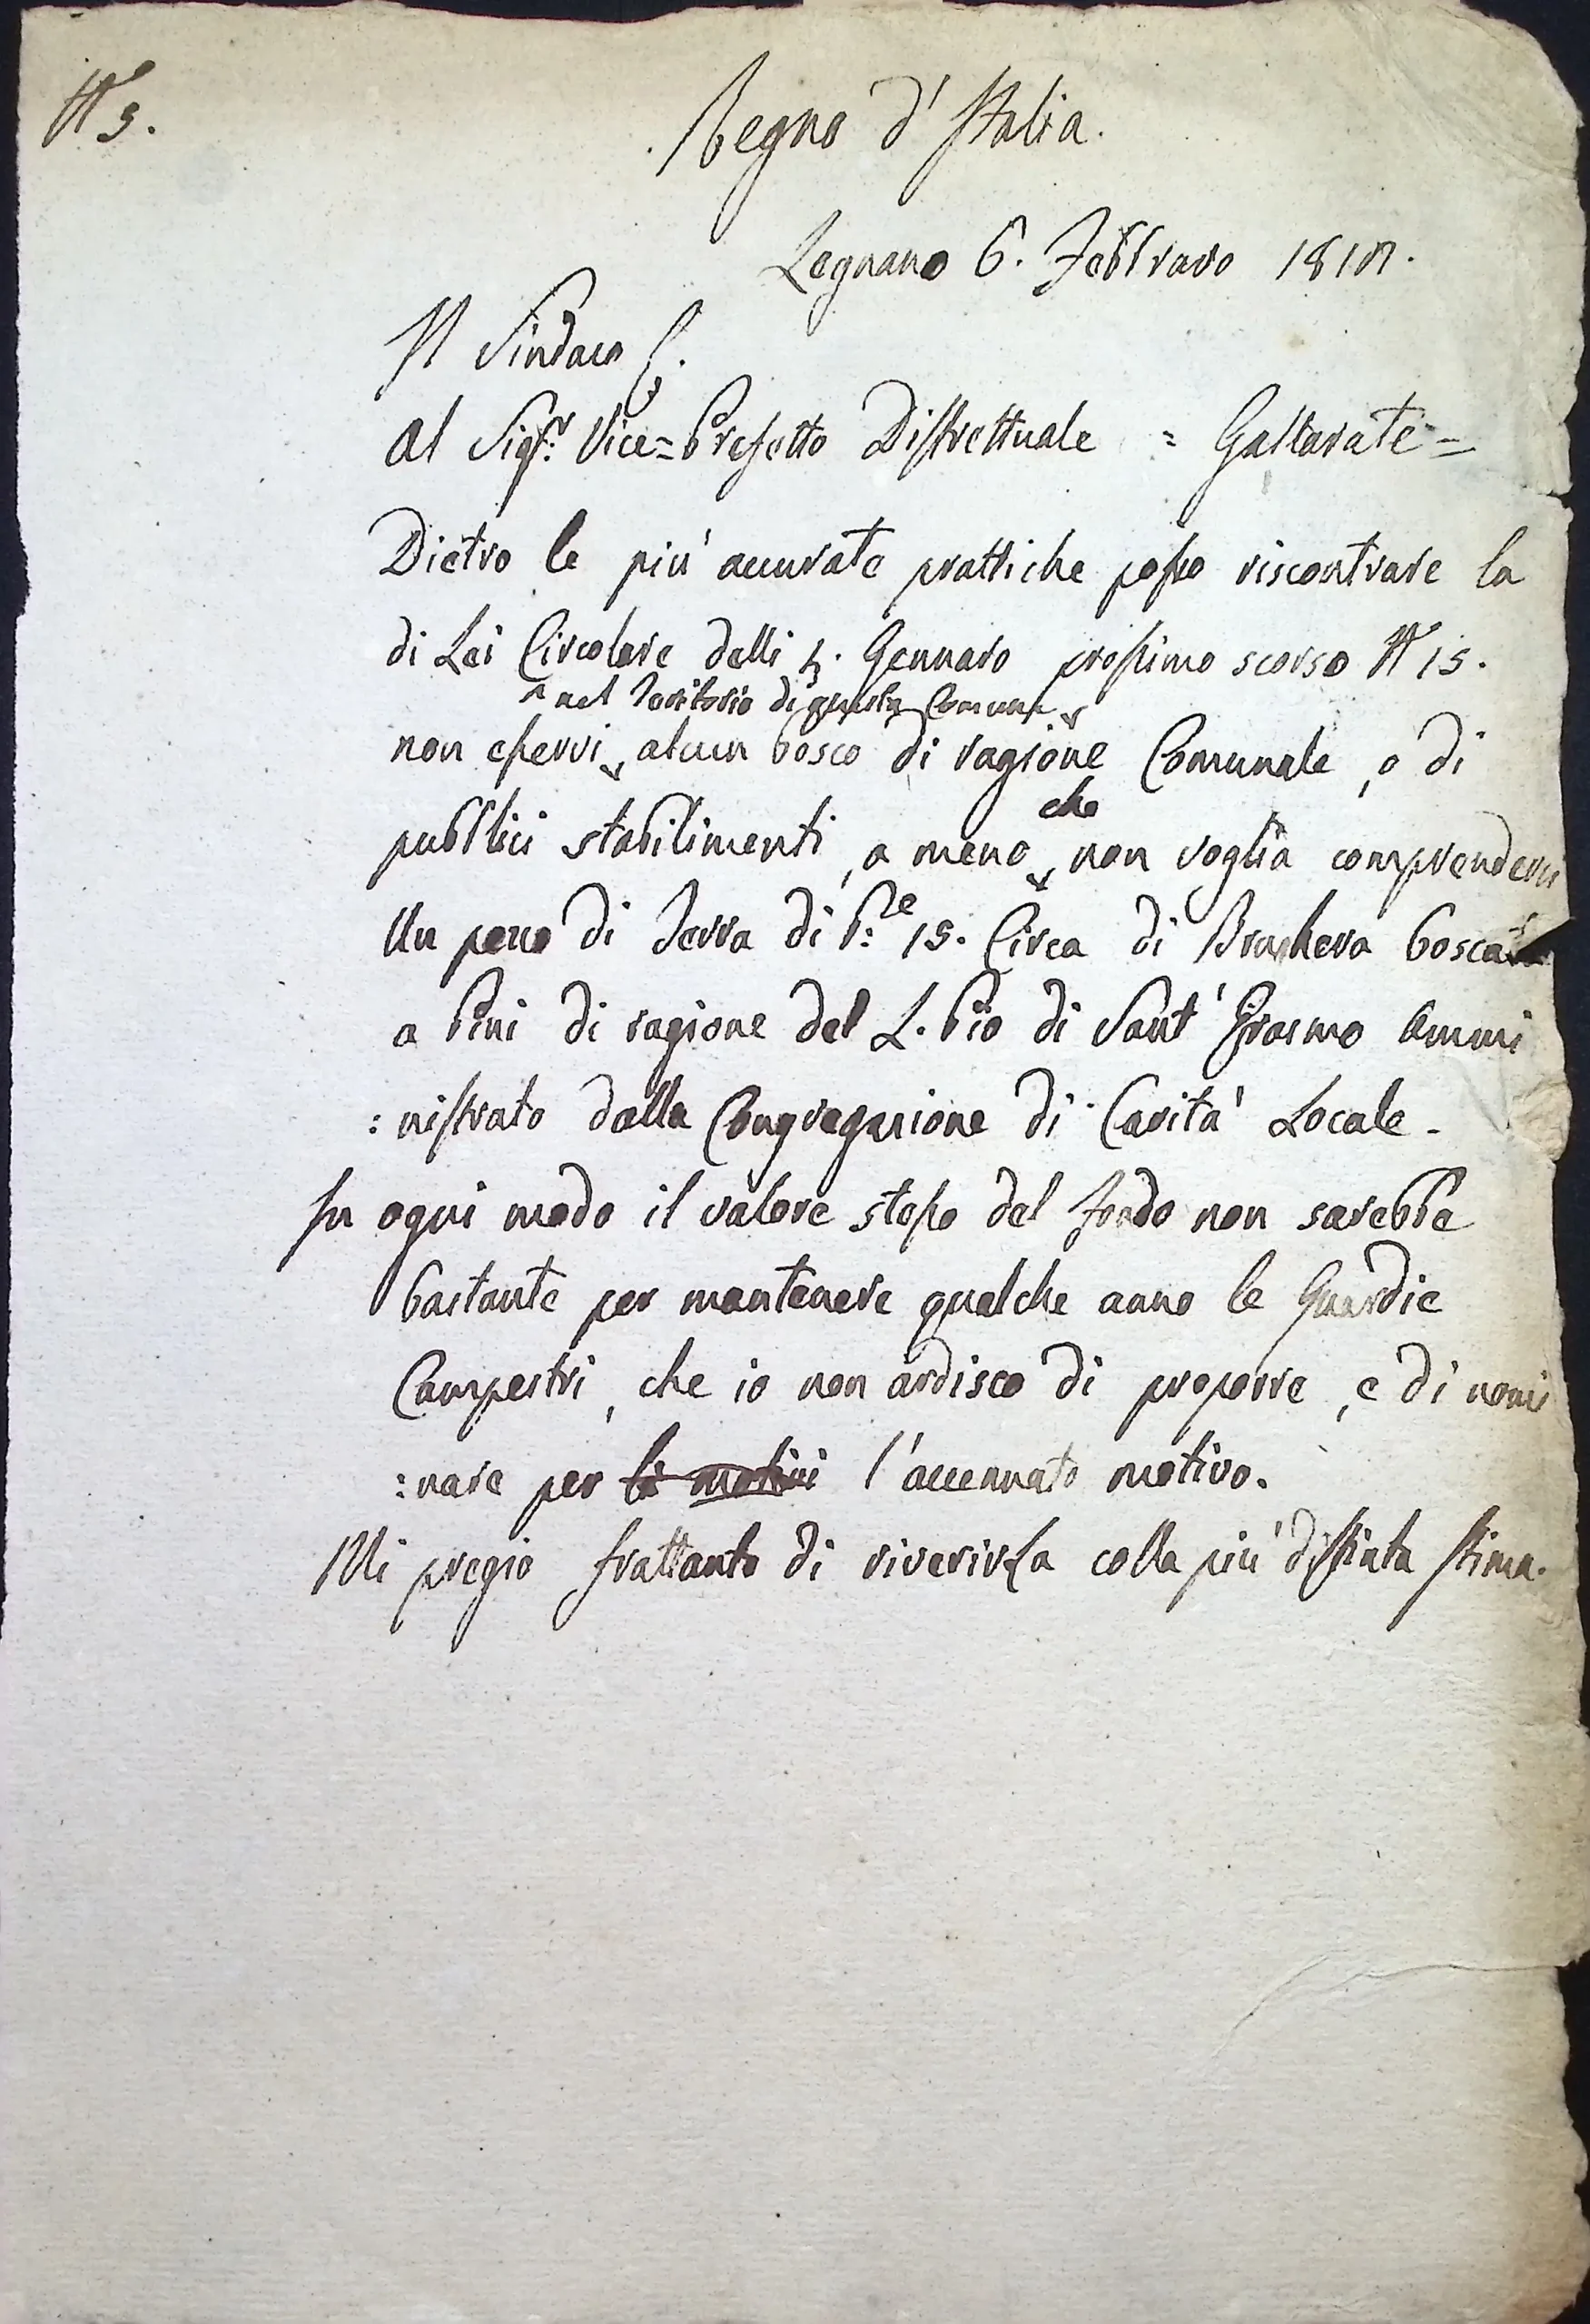 N° 9.
Regno d'Italia.
Legnano 6. Febbraro 1810.
Il Sindaco
Al Sigr. Vice=Prefetto Distrettuale = Gallarate=
Dietro le più accurate prattiche posso riscontrare la
di Lei Circolare delli 4. Gennaro prossimo scorso N° 15.
nel Territorio di questa Comune
non esservi alcun bosco di ragione Comunale, o di
che
pubblici stabilimenti, a meno non voglia comprendersi
Un pezzo di Terra di P:e 15. Circa di Brughera boscata
a Pini di ragione del L. Pio di Sant' Erasmo Ammi
:nistrato dalla Congregazione di Carità Locale.
In ogni modo il valore stesso del fondo non sarebbe
bastante per mantenere qualche anno le Guardie
Campestri, che io non ardisco di proporre, e di nomi
:nare per li motivi l'accennato motivo.
Mi pregio frattanto di riverirLa colla più distinta stima.